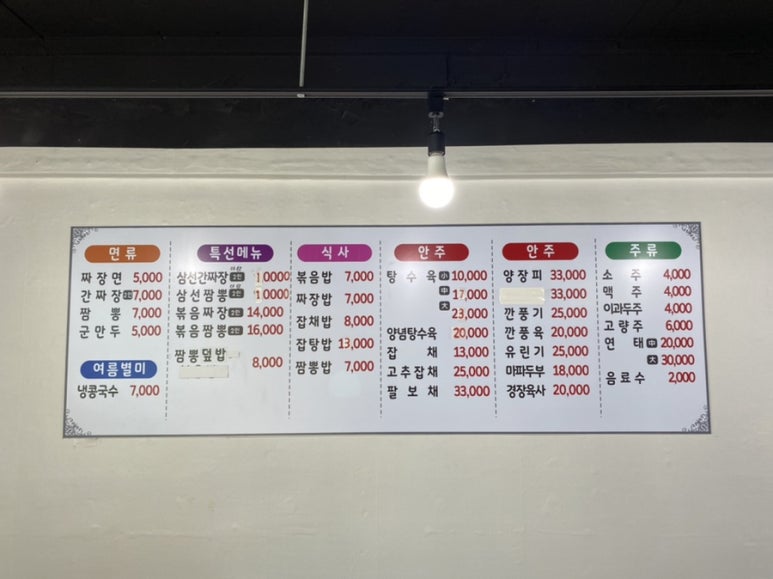 면류
짜장면 5,000
간짜장 7,000
짬뽕 7,000
군만두 5,000
여름별미
냉콩국수 7,000
특선메뉴
삼선간짜장 10000
삼선짬뽕 10000
볶음짜장 14,000
볶음짬뽕 16,000
짬뽕덮밥
8,000
식사
볶음밥 7,000
짜장밥 7,000
잡채밥 8,000
잡탕밥 13,000
짬뽕밥 7,000
안주
탕수육 小 10,000
中 17,000
大 23,000
양념탕수육 20,000
잡채 13,000
고추잡채 25,000
팔보채 33,000
안주
양장피 33,000
33,000
깐풍기 25,000
깐풍육 20,000
유린기 25,000
마파두부 18,000
경장육사 20,000
주류
소주 4,000
맥주 4,000
이과두주 4,000
고량주 6,000
연태 中 20,000
大 30,000
음료수 2,000